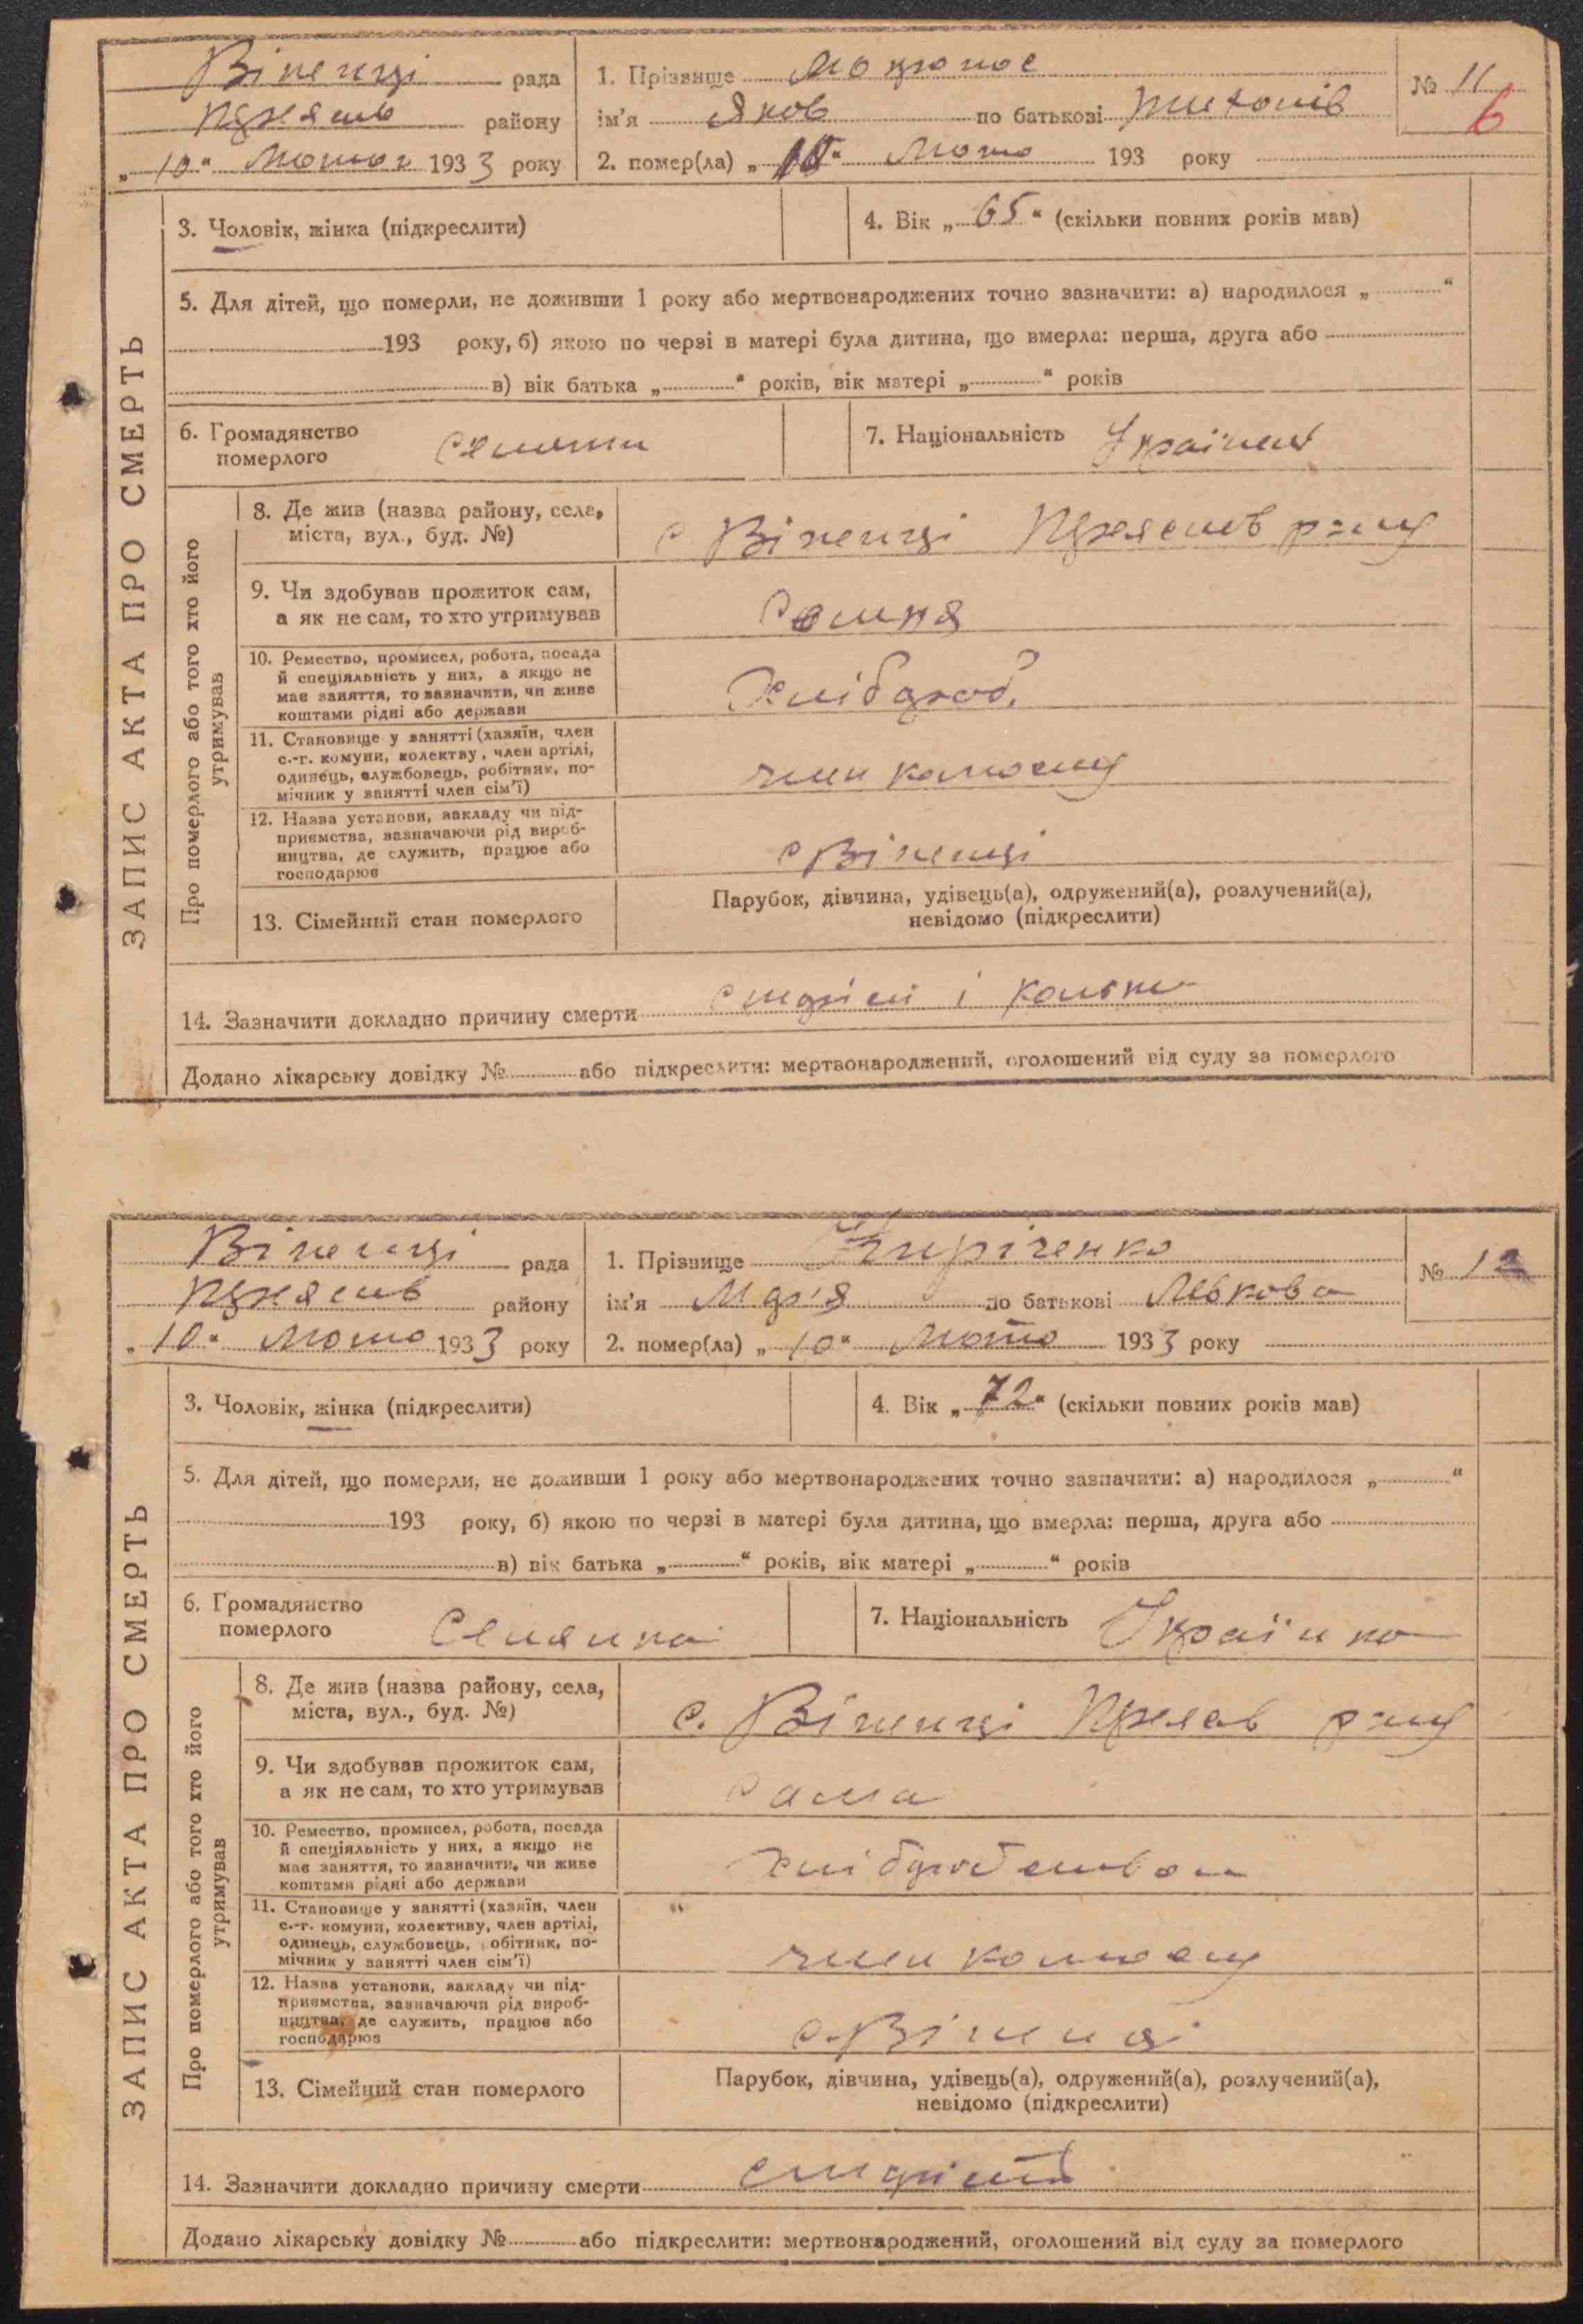 Віненці рада
району
„10“ 1933 року
1. Прізвище
ім'я Яков по батькові Тихонів
2. помер(ла) „10“ Люто 193 року
№ 11
6
ЗАПИС АКТА ПРО СМЕРТЬ
3. Чоловік, жінка (підкреслити)
4. Вік „65“ (скільки повних років мав)
5. Для дітей, що померли, не доживши 1 року або мертвонароджених точно зазначити: а) народилося „ “
193 року, б) якою по черзі в матері була дитина, що вмерла: перша, друга або
в) вік батька „ “ років, вік матері „ “ років
6. Громадянство
померлого
7. Національність Українец
Про померлого або того хто його
утримував
8. Де жив (назва району, села,
міста, вул., буд. №)
с Віненці р-ну
9. Чи здобував прожиток сам,
а як не сам, то хто утримував
10. Ремество, промисел, робота, посада
й спеціяльність у них, а якщо не
має заняття, то зазначити, чи живе
коштами рідні або держави
Хлібороб.
11. Становище у занятті (хазяїн, член
с.-г. комуни, колективу, член артілі,
одинець, службовець, робітник, по-
мічник у занятті член сім'ї)
член колгоспу
12. Назва установи, закладу чи під-
приємства, зазначаючи рід вироб-
ництва, де служить, працює або
господарює
с Віненці
13. Сімейний стан померлого
Парубок, дівчина, удівець(а), одружений(а), розлучений(а),
невідомо (підкреслити)
14. Зазначити докладно причину смерти
Додано лікарську довідку № або підкреслити: мертвонароджений, оголошений від суду за померлого
Віненці рада
району
„10“ Люто 1933 року
1. Прізвище Кириченко
ім'я Марія по батькові Левкова
2. помер(ла) „10“ Люто 1933 року
№ 12
ЗАПИС АКТА ПРО СМЕРТЬ
3. Чоловік, жінка (підкреслити)
4. Вік „72“ (скільки повних років мав)
5. Для дітей, що померли, не доживши 1 року або мертвонароджених точно зазначити: а) народилося „ “
193 року, б) якою по черзі в матері була дитина, що вмерла: перша, друга або
в) вік батька „ “ років, вік матері „ “ років
6. Громадянство
померлого
Селянка
7. Національність Українка
Про померлого або того хто його
утримував
8. Де жив (назва району, села,
міста, вул., буд. №)
с. Віненці р-ну
9. Чи здобував прожиток сам,
а як не сам, то хто утримував
Сама
10. Ремество, промисел, робота, посада
й спеціяльність у них, а якщо не
має заняття, то зазначити, чи живе
коштами рідні або держави
11. Становище у занятті (хазяїн, член
с.-г. комуни, колективу, член артілі,
одинець, службовець, робітник, по-
мічник у занятті член сім'ї)
член колгоспу
12. Назва установи, закладу чи під-
приємства, зазначаючи рід вироб-
ництва, де служить, працює або
господарює
с. Віненці
13. Сімейний стан померлого
Парубок, дівчина, удівець(а), одружений(а), розлучений(а),
невідомо (підкреслити)
14. Зазначити докладно причину смерти старість
Додано лікарську довідку № або підкреслити: мертвонароджений, оголошений від суду за померлого